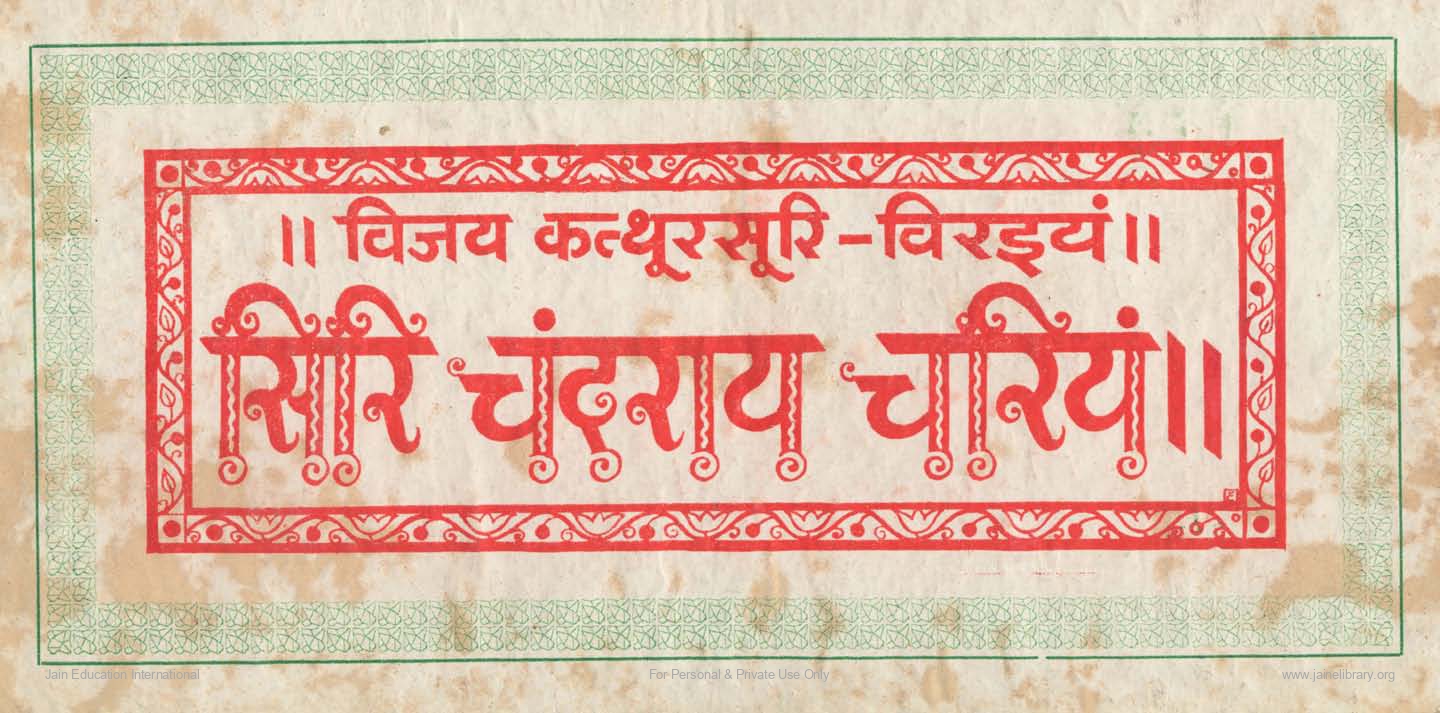 ॥ विजय कत्थूरसूरि-विरइयं॥
सिरि चंदराय चरियं॥
Jain Education International
For Personal & Private Use Only
www.jainelibrary.org